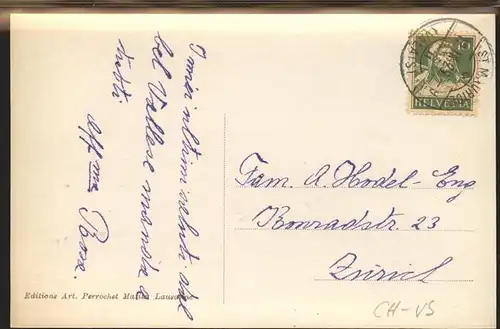 I miei ultimi saluti dal
bel Vallese manda a
tutti
aff.ma Rosa.
Fam. A. Hodel-Eng
Konradstr. 23
Zürich
10
HELVETIA
ST. MAURICE
Editions Art. Perrochet Lausanne
CH-VS